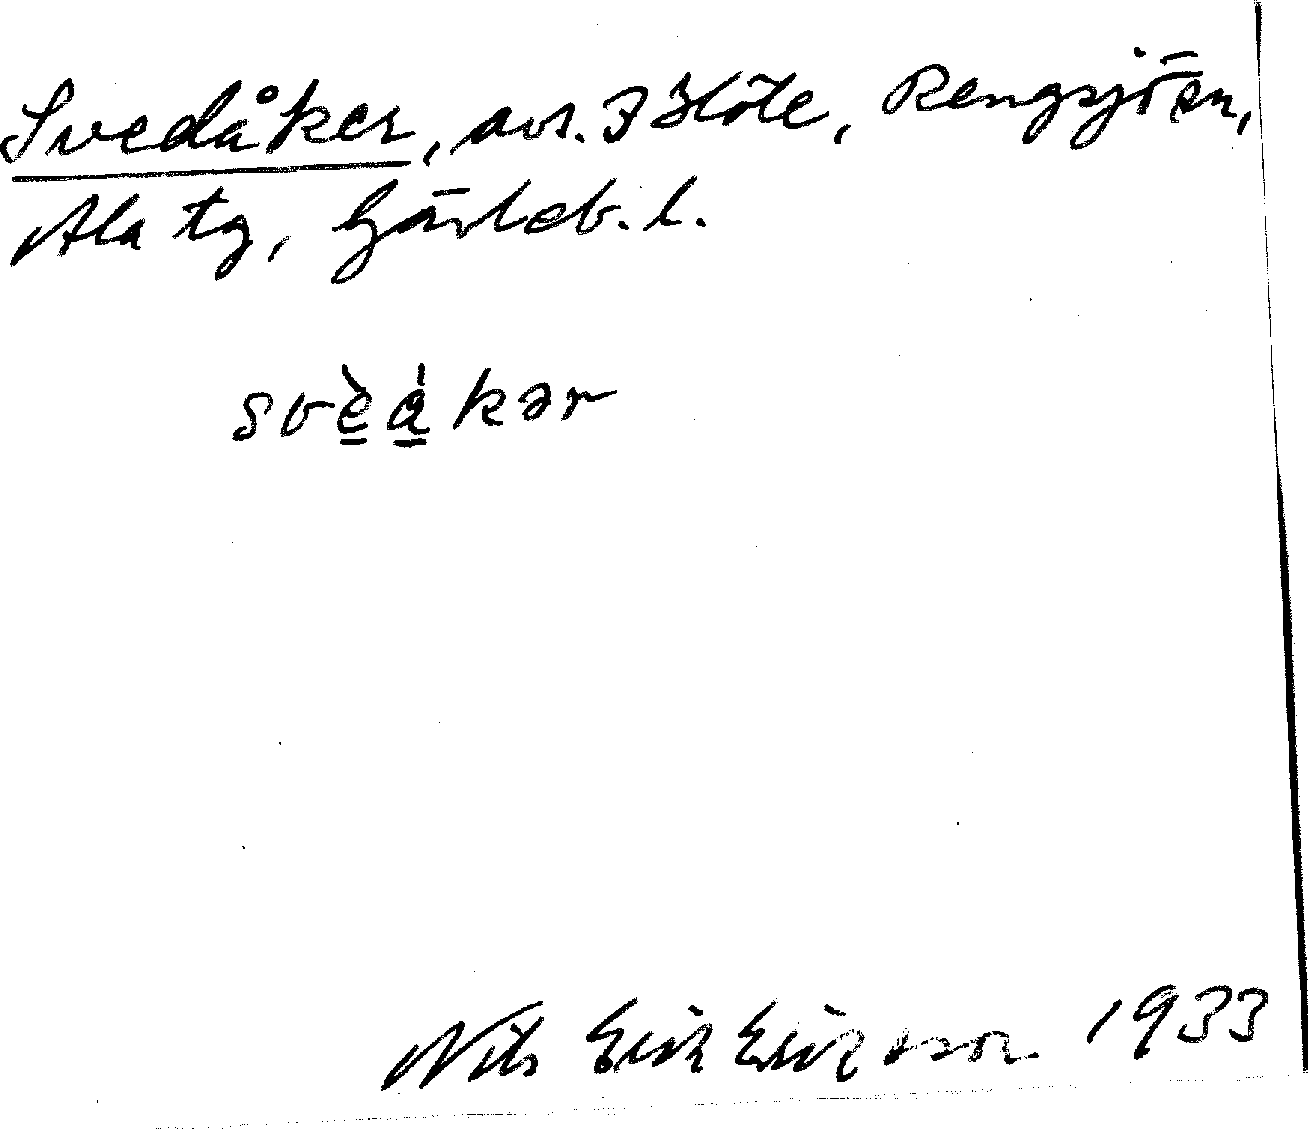 Svedåker, avs. 3 Höle, Rengsjö sn,
Ala tg, Gävleb. l.
svèa̍kər
Nils Erik Erixson 1933